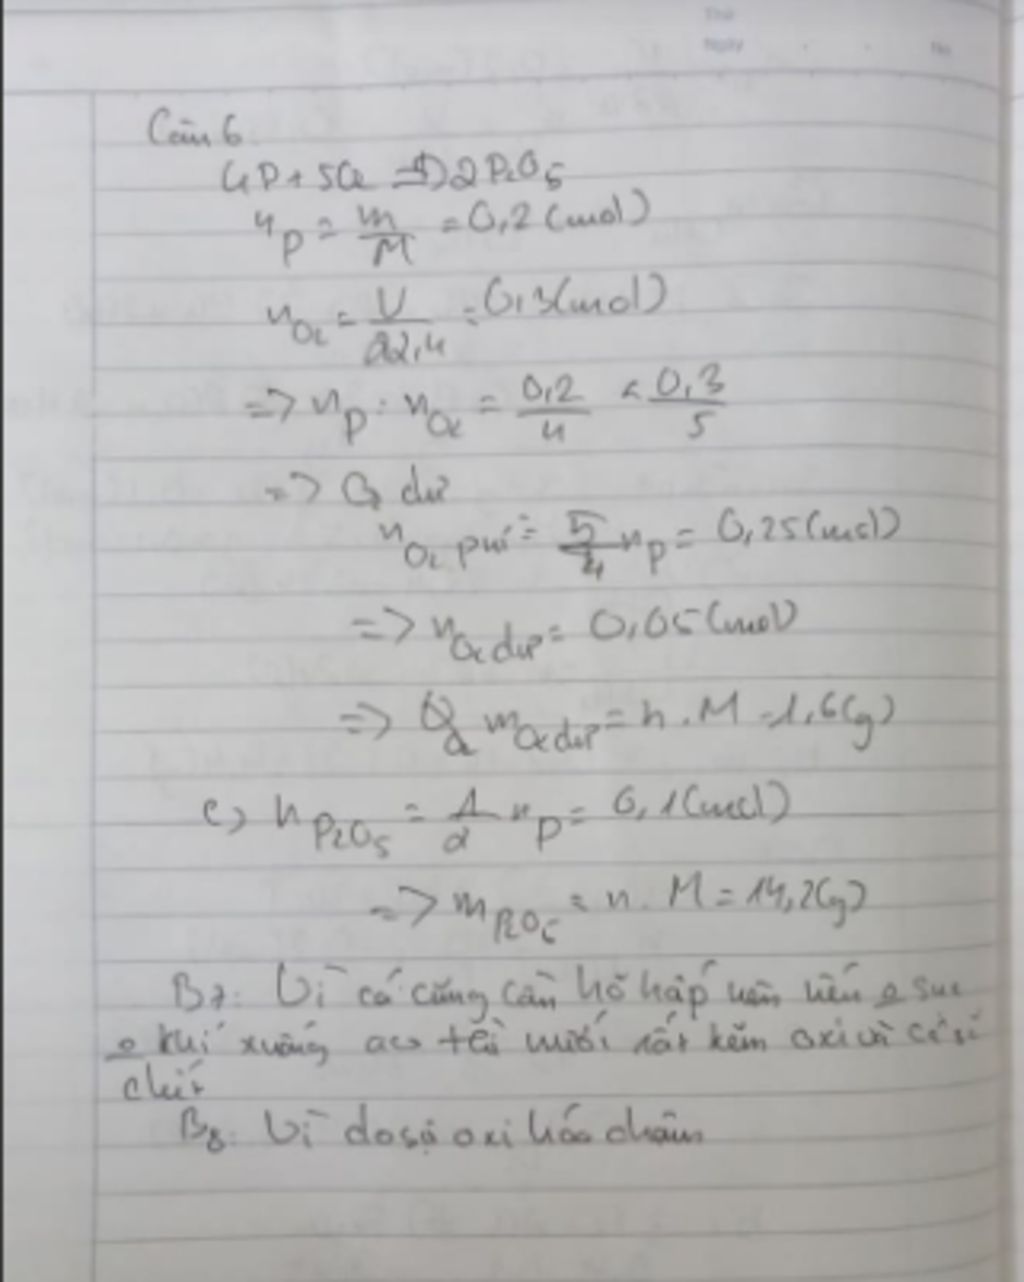 Thứ
Ngày No
Câu 6
4P + 5O₂ => 2P₂O₅
n_P = m/M = 0,2 (mol)
n_O₂ = V/22,4 = 0,3 (mol)
=> n_P : n_O₂ = 0,2/4 < 0,3/5
=> O₂ dư
n_O₂ pứ = 5/4 n_P = 0,25 (mol)
=> n_O₂ dư = 0,05 (mol)
=> m_O₂ dư = n . M = 1,6 (g)
c) n_P₂O₅ = 1/2 n_P = 0,1 (mol)
=> m_P₂O₅ = n . M = 14,2 (g)
B7: Vì cá cũng cần hô hấp nên nếu sục
khí xuống ao thì nước rất kém oxi và cá sẽ
chết
B8: Vì do sự oxi hóa chậm